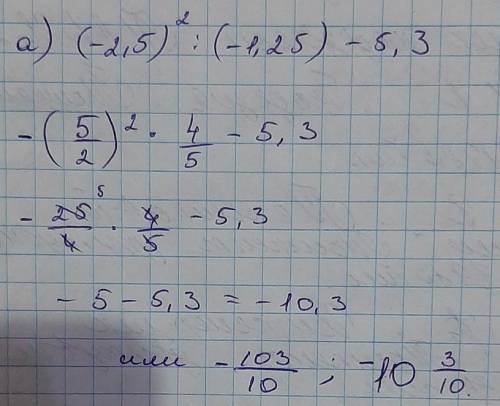 а) (-2,5)² : (-1,25) - 5,3
- (5/2)² · 4/5 - 5,3
- 25/4 5 · 4/5 - 5,3
- 5 - 5,3 = - 10,3
или - 103/10 ; -10 3/10.